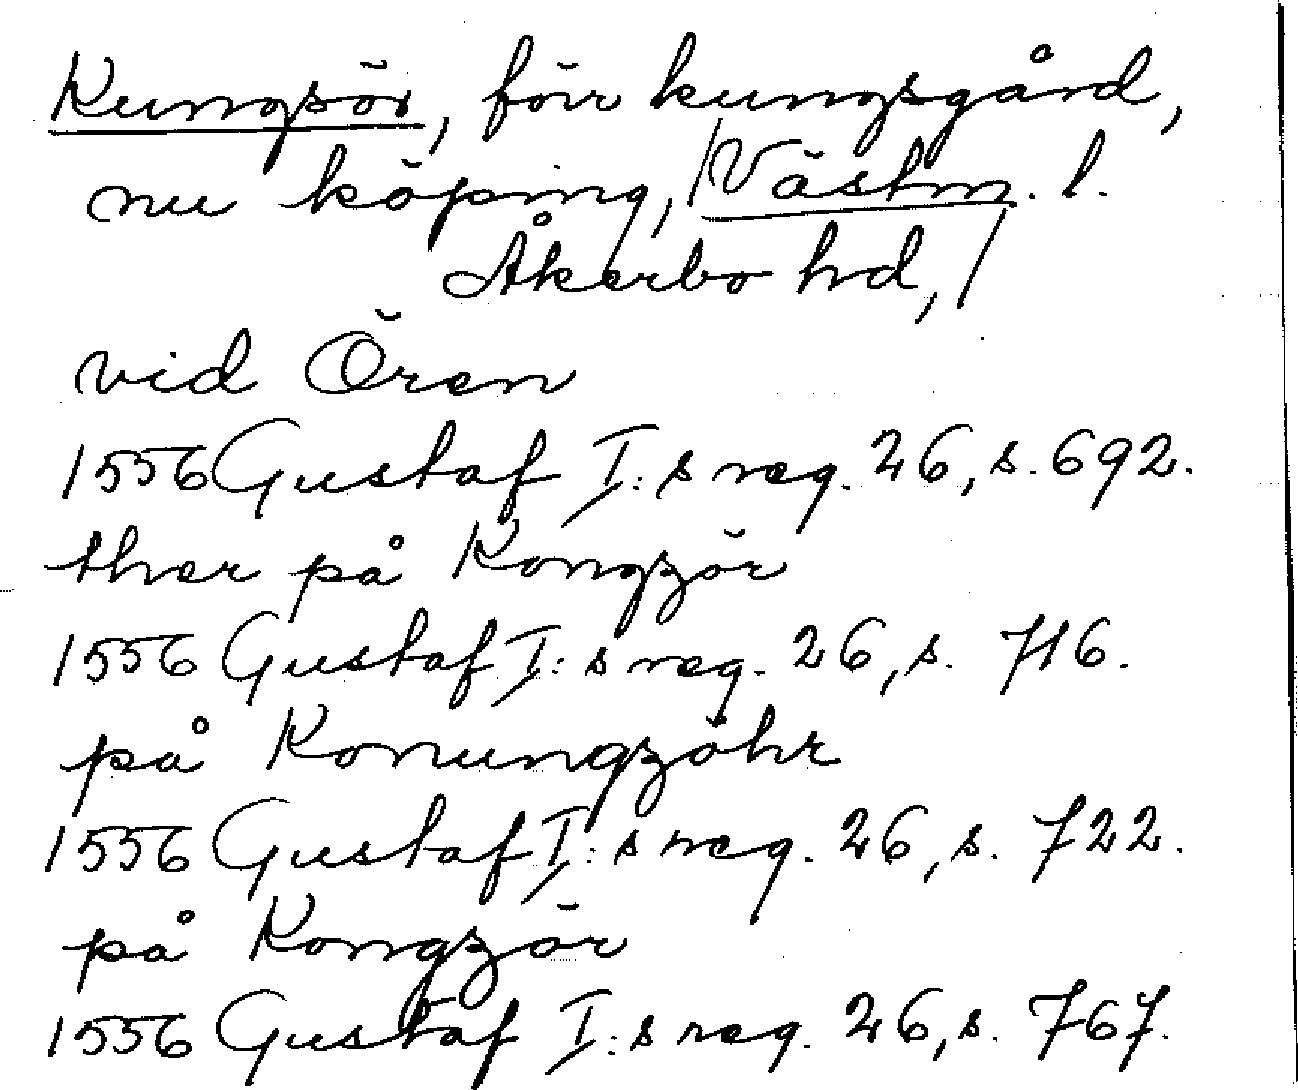 Kungsör, förr kungsgård,
nu köping, /Västm. l.
Åkerbo hd,/
vid Ören
1556 Gustaf I:s reg. 26, s. 692.
ther på Kongzör
1556 Gustaf I:s reg. 26, s. 716.
på Konungzöhr
1556 Gustaf I:s reg. 26, s. 722.
på Kongzör
1556 Gustaf I:s reg. 26, s. 767.